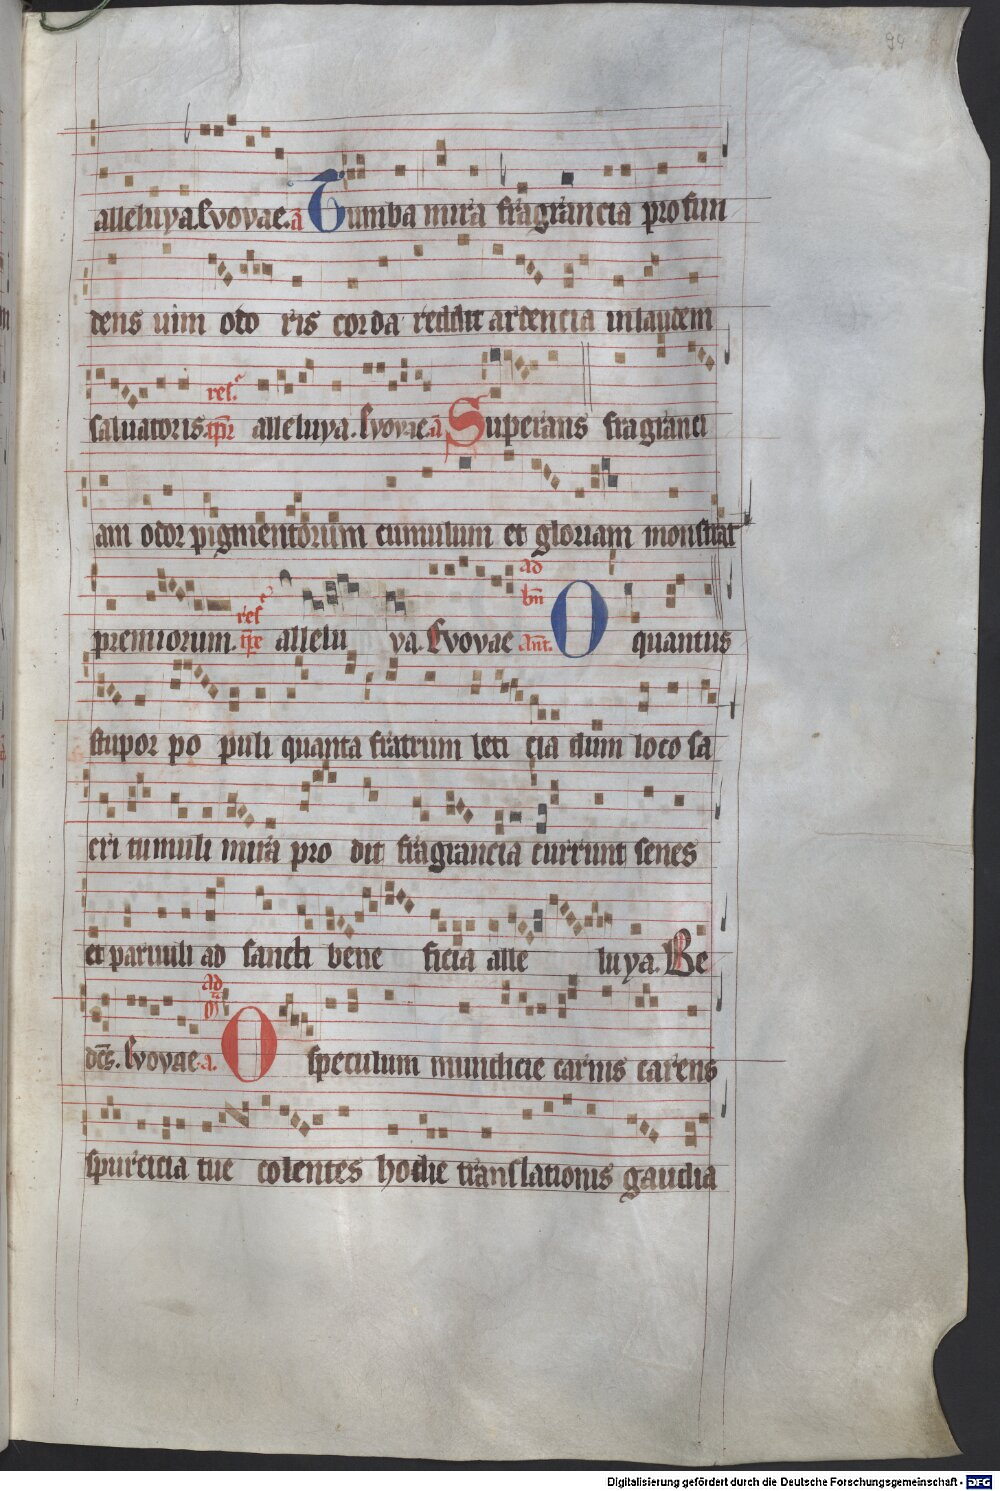 94
alleluya. Evovae. a Tumba mira fragrancia profun
dens uim odo ris corda reddit ardencia in laudem
saluatoris. alleluya. Evovae. a Superans fragranci
am odor pigmentorum cumulum et gloriam monstrat
premiorum. allelu ya. Evovae ad bn ant. O quantus
stupor po puli quanta fratrum leti cia dum loco sa
cri tumuli mira pro dit fragrancia currunt senes
et paruuli ad sancti bene ficia alle luya. Be
dcs. Evovae. a. O speculum mundicie carnis carens
spurcicia tue colentes hodie translationis gaudia
Digitalisierung gefördert durch die Deutsche Forschungsgemeinschaft - DFG